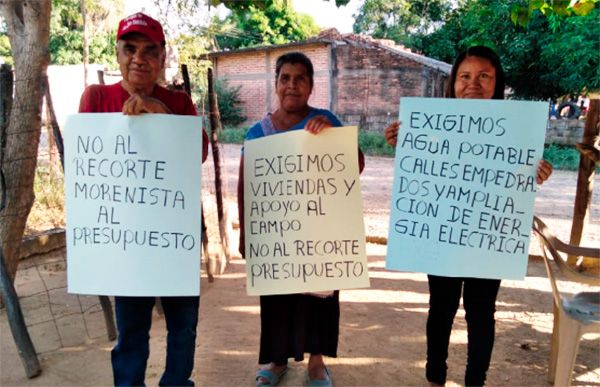 NO AL
RECORTE
MORENISTA
AL
PRESUPUESTO
EXIGIMOS
VIVIENDAS Y
APOYO AL
CAMPO
NO AL RECORTE
PRESUPUESTO
EXIGIMOS
AGUA POTABLE
CALLES EMPEDRA_
DOS Y AMPLIA_
CION DE ENER_
GIA ELECTRICA